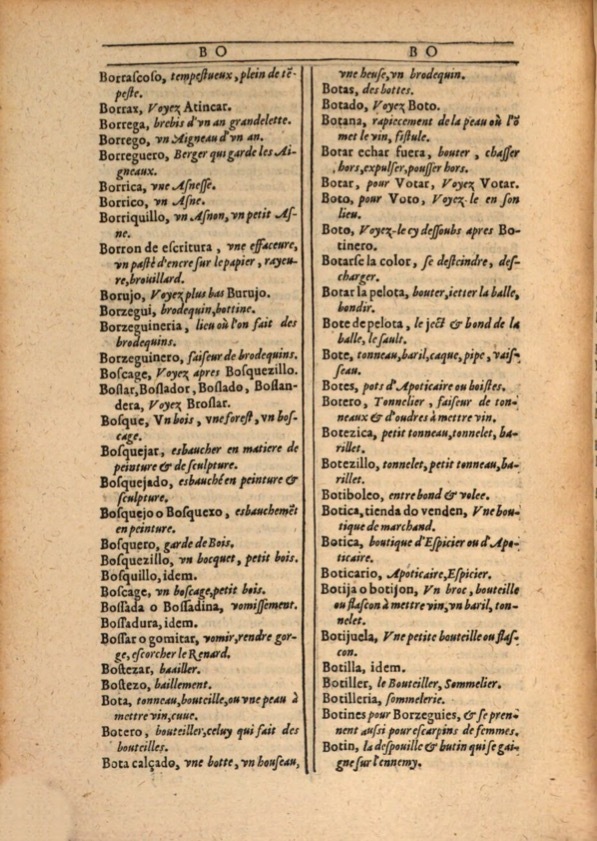 BO
Borrascoso, tempestueux, plein de tẽ-
peste.
Borrax, Voyez Atincar.
Borrega, brebis d'vn an grandelette.
Borrego, vn Aigneau d'vn an.
Borreguero, Berger qui garde les Ai-
gneaux.
Borrica, vne Asnesse.
Borrico, vn Asne.
Borriquillo, vn Asnon, vn petit As-
ne.
Borron de escritura, vne effaceure,
vn pasté d'encre sur le papier, rayeu-
re, brouillard.
Borujo, Voyez plus bas Burujo.
Borzegui, brodequin, bottine.
Borzeguineria, lieu où l'on fait des
brodequins.
Borzeguinero, faiseur de brodequins.
Boscage, Voyez apres Bosquezillo.
Boslar, Boslador, Boslado, Boslan-
dera, Voyez Broslar.
Bosque, Vn bois, vne forest, vn bos-
cage.
Bosquejar, esbaucher en matiere de
peinture & de sculpture.
Bosquejado, esbauché en peinture &
sculpture.
Bosquejo o Bosquexo, esbauchemẽt
en peinture.
Bosquero, garde de Bois.
Bosquezillo, vn bocquet, petit bois.
Bosquillo, idem.
Boscage, vn boscage, petit bois.
Bossada o Bossadina, vomissement.
Bossadura, idem.
Bossar o gomitar, vomir, rendre gor-
ge, escorcher le Renard.
Bostezar, baailler.
Bostezo, baillement.
Bota, tonneau, bouteille, ou vne peau à
mettre vin, cuue.
Botero, bouteiller, celuy qui fait des
bouteilles.
Bota calçado, vne botte, vn houseau,
BO
vne heuse, vn brodequin.
Botas, des bottes.
Botado, Voyez Boto.
Botana, rapiecement de la peau où l'õ
met le vin, fistule.
Botar echar fuera, bouter, chasser
hors, expulser, pousser hors.
Botar, pour Votar, Voyez Votar.
Boto, pour Voto, Voyez-le en son
lieu.
Boto, Voyez-le cy dessoubs apres Bo-
tinero.
Botarse la color, se desteindre, des-
charger.
Botar la pelota, bouter, ietter la balle,
bondir.
Bote de pelota, le ject & bond de la
balle, le sault.
Bote, tonneau, baril, caque, pipe, vais-
seau.
Botes, pots d'Apoticaire ou boistes.
Botero, Tonnelier, faiseur de ton-
neaux & d'oudres à mettre vin.
Botezica, petit tonneau, tonnelet, ba-
rillet.
Botezillo, tonnelet, petit tonneau, ba-
rillet.
Botiboleo, entre bond & volee.
Botica, tienda do venden, Vne bou-
tique de marchand.
Botica, boutique d'Espicier ou d'Apo-
ticaire.
Boticario, Apoticaire, Espicier.
Botija o botijon, Vn broc, bouteille
ou flascon à mettre vin, vn baril, ton-
nelet.
Botijuela, Vne petite bouteille ou flas-
con.
Botilla, idem.
Botiller, le Bouteiller, Sommelier.
Botilleria, sommelerie.
Botines pour Borzeguies, & se pren-
nent aussi pour escarpins de femmes.
Botin, la despouille & butin qui se gai-
gne sur l'ennemy.